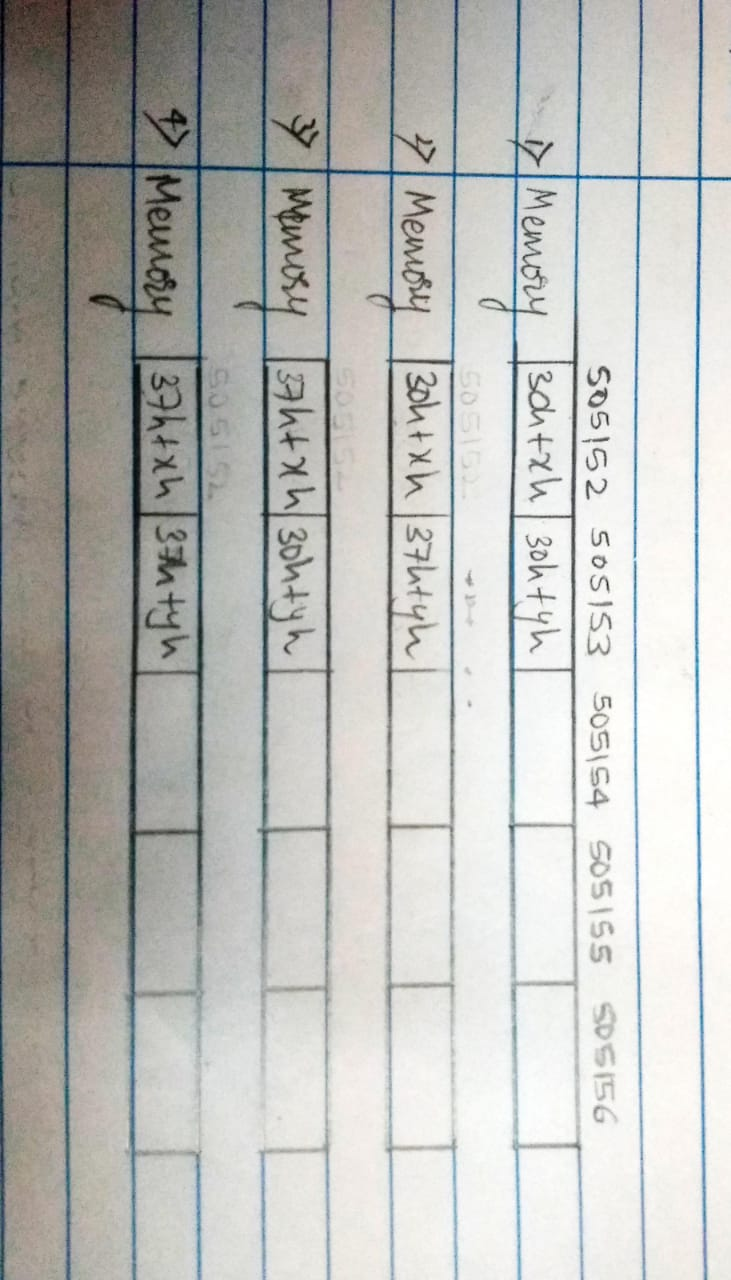 505152 505153 505154 505155 505156
1> Memory 30h+xh 30h+yh
2> Memory 30h+xh 37h+yh
505152
3> Memory 37h+xh 30h+yh
505152
4> Memory 37h+xh 37h+yh
505152